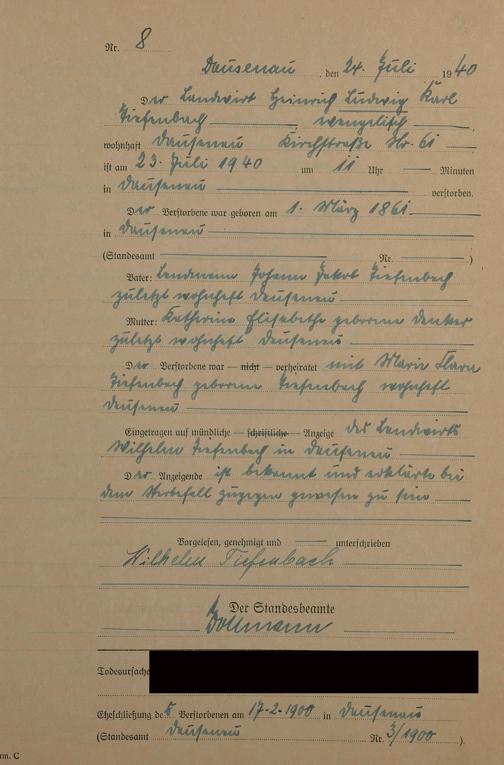 Nr. 8
Dausenau, den 24. Juli 1940
Der Landwirt Heinrich Ludwig Karl
Tiefenbach evangelisch
wohnhaft Dausenau Kirchstraße Nr. 61
ist am 23. Juli 1940 um 11 Uhr — Minuten
in Dausenau verstorben.
Der Verstorbene war geboren am 1. März 1861
in Dausenau
(Standesamt — Nr. —)
Vater: Landmann Johann Jakob Tiefenbach
zuletzt wohnhaft Dausenau
Mutter: Katharine Elisabethe geborene Denker
zuletzt wohnhaft Dausenau
Der Verstorbene war — nicht — verheiratet mit Marie Klara
Tiefenbach geborene Tiefenbach wohnhaft
Dausenau
Eingetragen auf mündliche — schriftliche — Anzeige des Landwirts
Wilhelm Tiefenbach in Dausenau
Der Anzeigende ist bekannt und erklärte bei
dem Sterbefall zugegen gewesen zu sein
Vorgelesen, genehmigt und — unterschrieben
Wilhelm Tiefenbach
Der Standesbeamte
Dollmann
Todesursache
Eheschließung des Verstorbenen am 17.2.1900 in Dausenau
(Standesamt Dausenau Nr. 3/1900).
rm. C